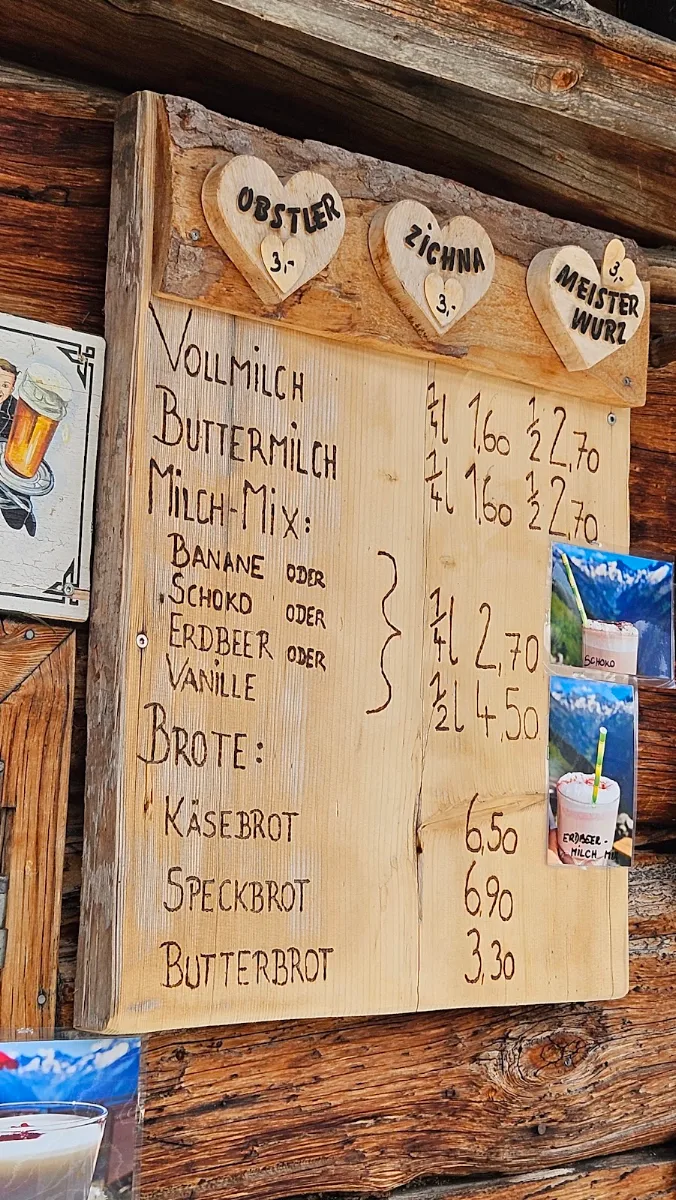 OBSTLER
3,-
ZICHNA
3,-
3,-
MEISTER
WURZ
VOLLMILCH ¼l 1,60 ½ 2,70
BUTTERMILCH ¼l 1,60 ½ 2,70
MILCH-MIX:
BANANE ODER
SCHOKO ODER
ERDBEER ODER ¼l 2,70
VANILLE ½l 4,50
BROTE:
KÄSEBROT 6,50
SPECKBROT 6,90
BUTTERBROT 3,30
SCHOKO
ERDBEER-
MILCH MI